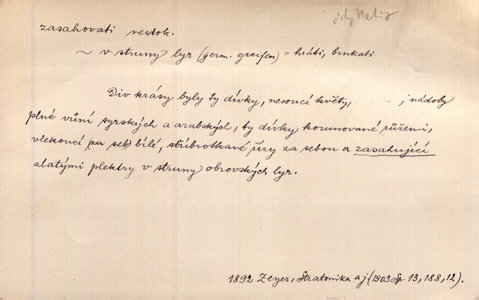 zasahovati nedok.
~ v struny lyr (germ. greifen) = hráti, brnkati
Div krásy byly ty dívky, nesoucí květy, - ; nádoby
plné vůní syrských a arabských, ty dívky korunované růžemi,
vlekoucí (za seb) bílé, stříbrotkané řízy za sebou a zasahující
zlatými plektry v struny obrovských lyr.
1892 Zeyer, Stratonika a j. (1903 Sp. 13, 188, 12).